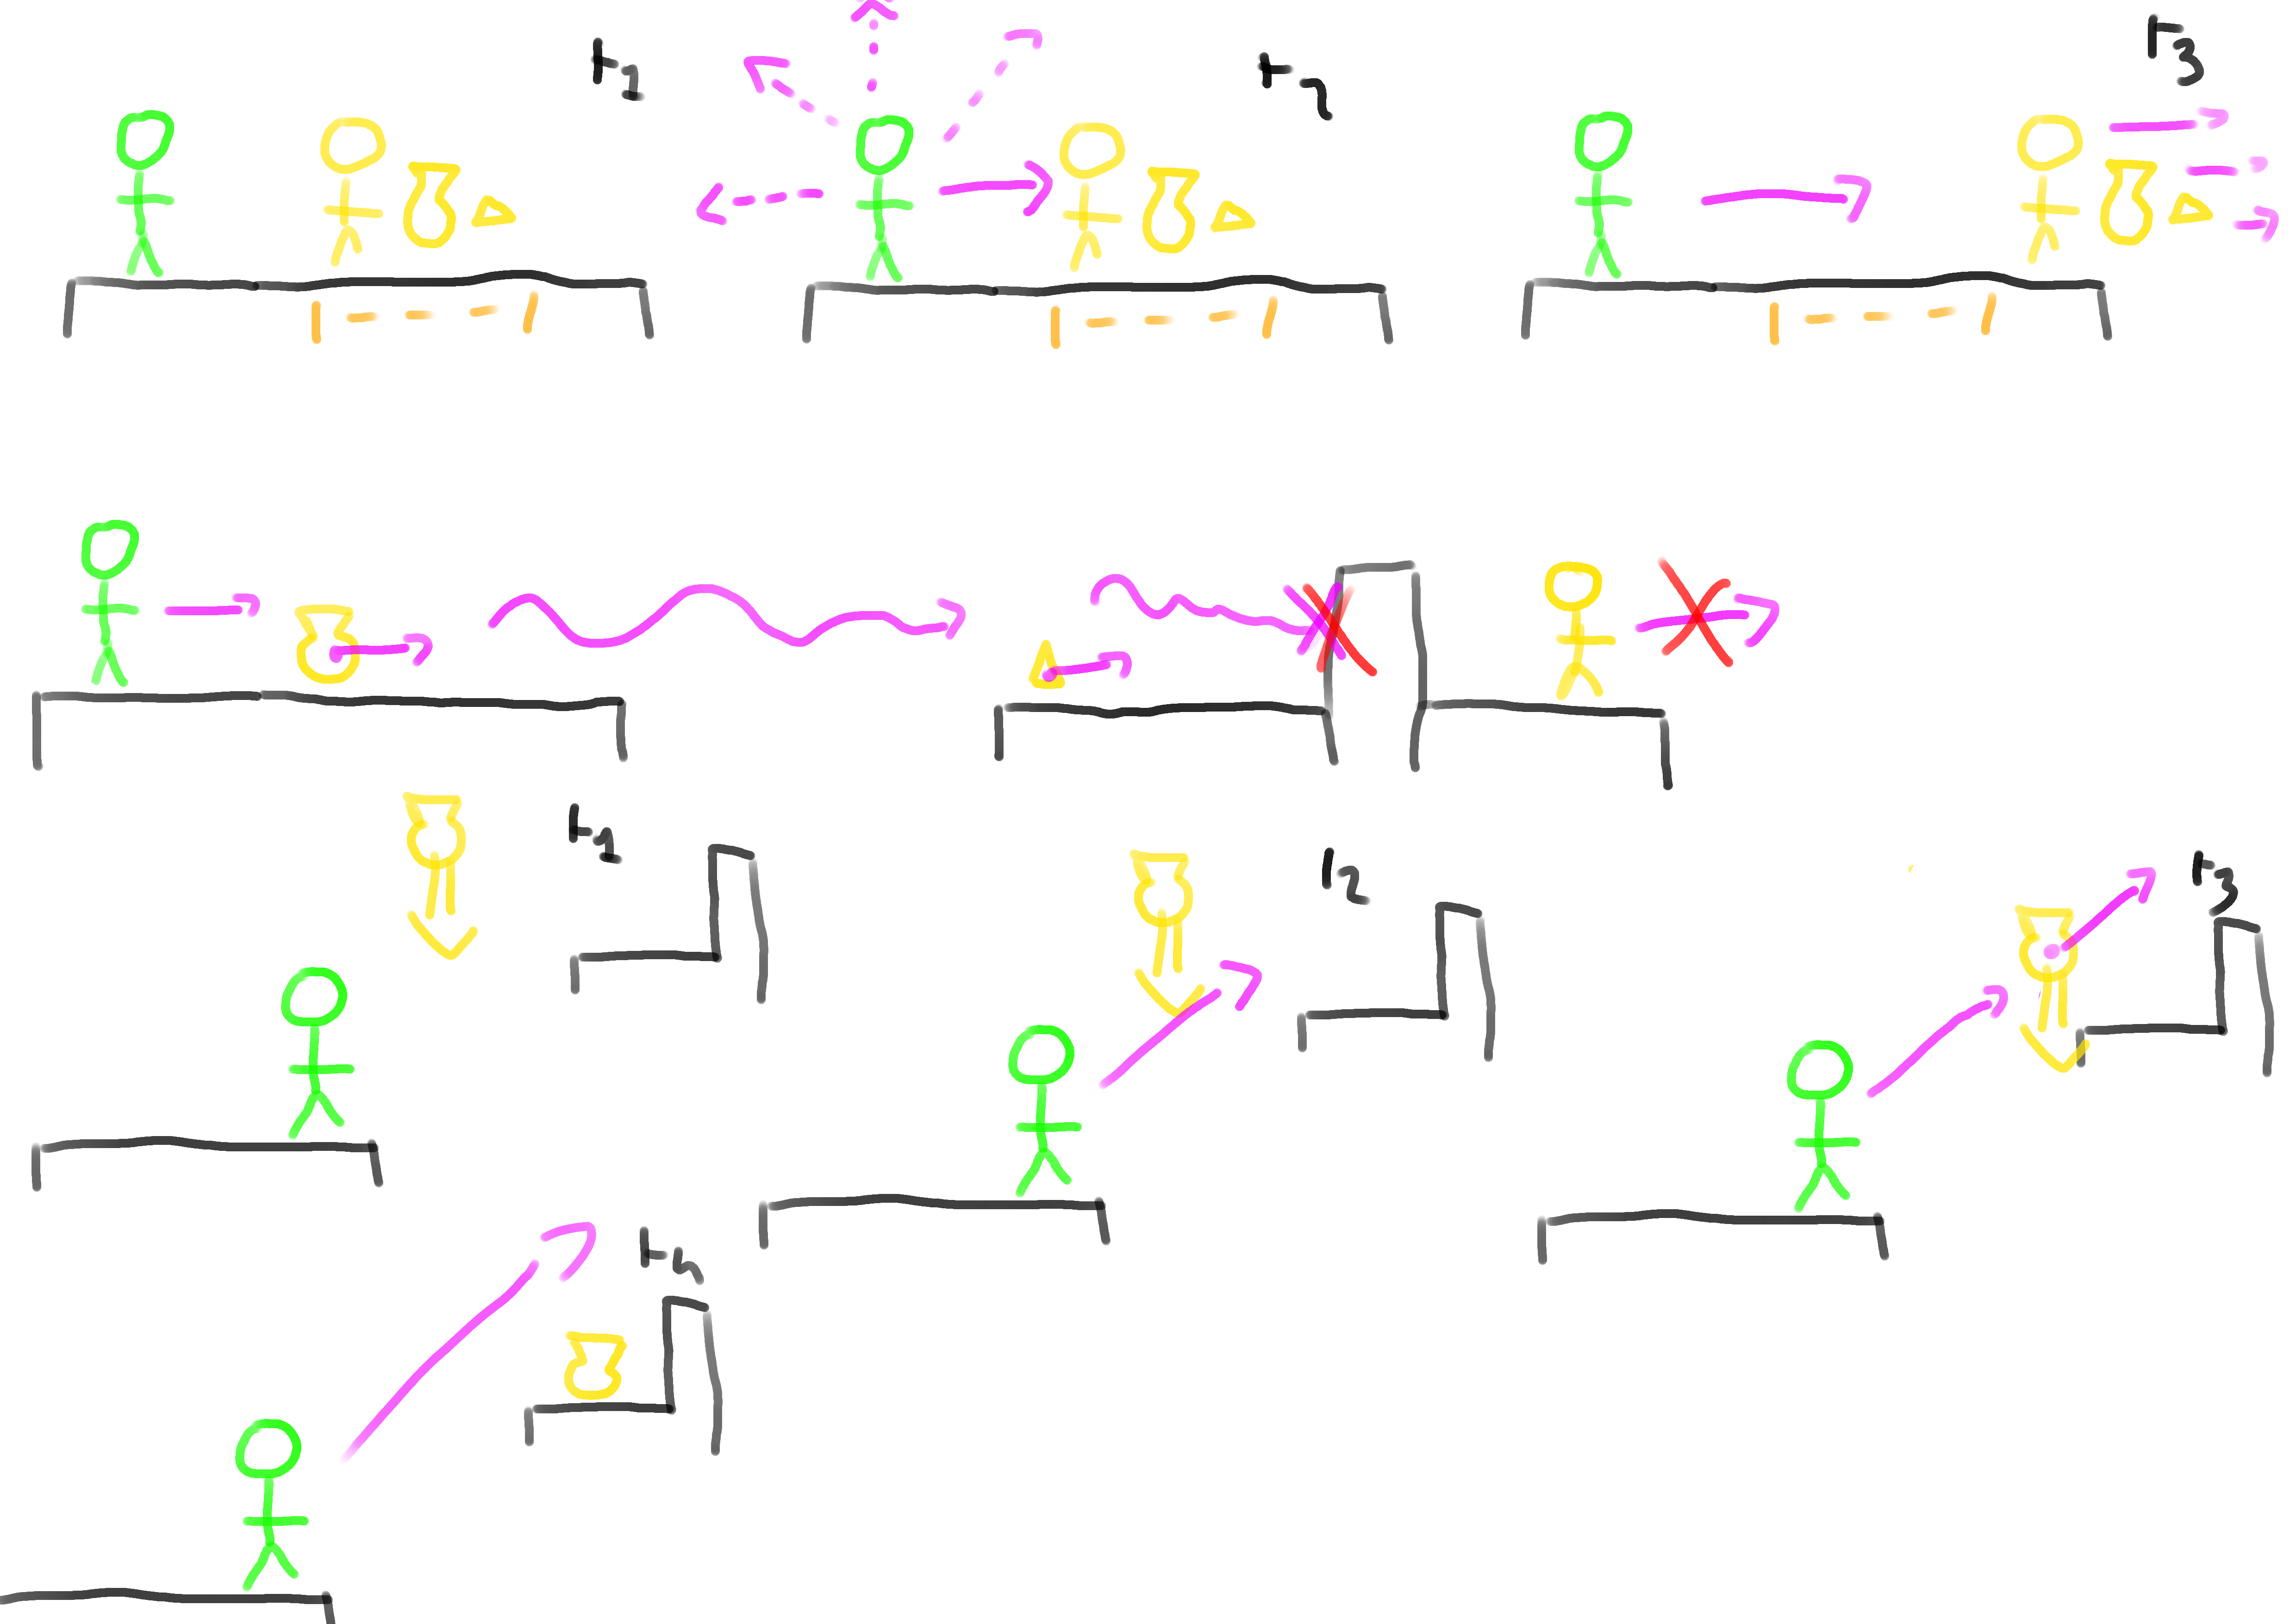 t1
t2
t3
t1
t2
t3
t4